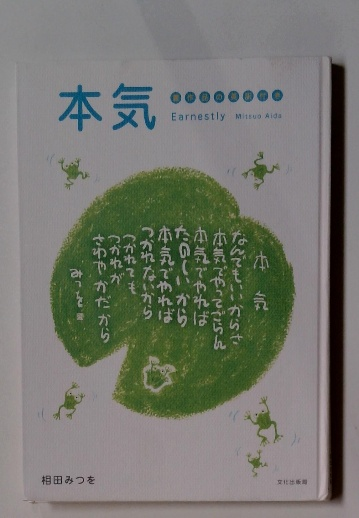 本気
Earnestly Mitsuo Aida
本気
なんでもいいからさ
本気でやってごらん
本気でやれば
たのしいから
本気でやれば
つかれないから
つかれても
つかれが
さわやかだから
みつを
相田みつを
文化出版局